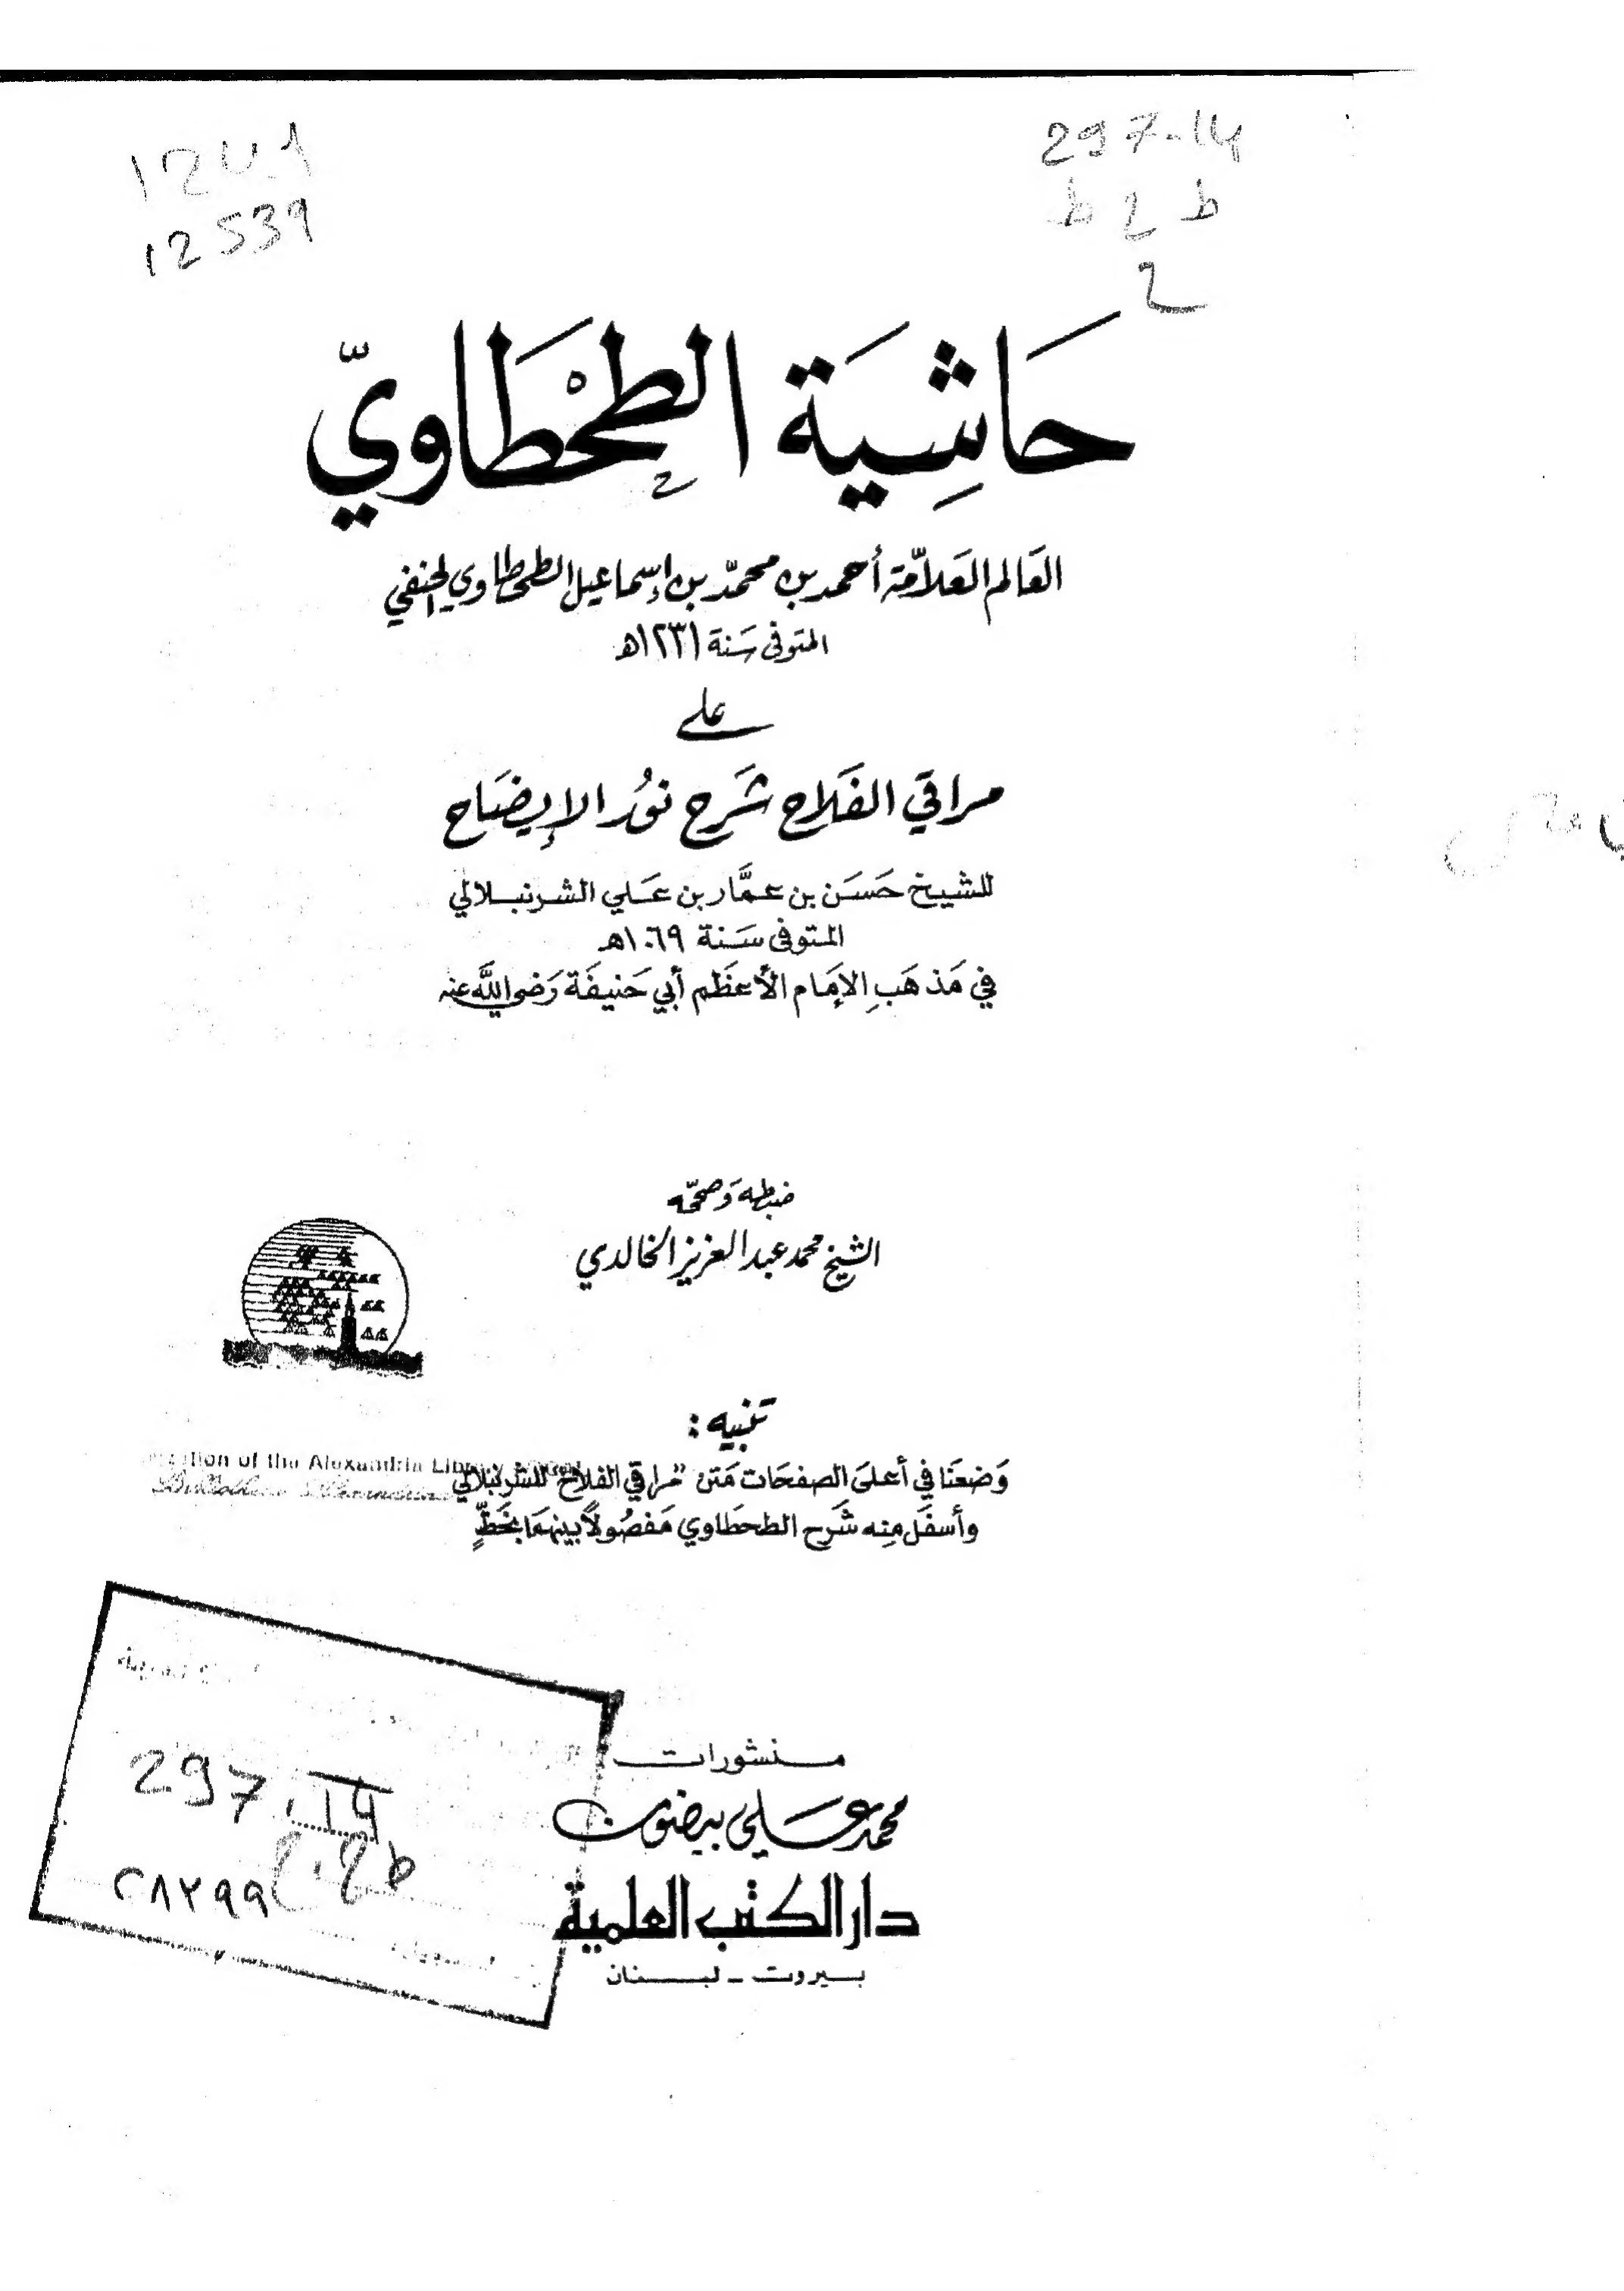 297.14
12539
حَاشِيَة الطحْطَاويّ
العَالم العَلاّمَة أحمد بن محمّد بن إسماعيل الطحطاوي الحنفي
المتوفى سَنة ١٢٣١هـ
على
مراقي الفَلاح شَرح نوُر الإيضَاح
للشيخ حَسَن بن عمَّار بن عَلي الشرنبلالي
المتوفى سَنة ١٠٦٩هـ
في مَذهَبِ الإمَام الأعظَم أبي حَنيفَة رَضي اللَّه عنه
ضبطه وَصحّحه
الشيخ محمد عبد العزيز الخالدي
تنبيه :
of the Alexandria Library
وَضعنَا في أعلى الصفحَات مَتن "مراقي الفلاح" للشرنبلالي
وأسفَل مِنه شَرح الطحطَاوي مَفصُولاً بينهمَا بخَطٍّ
297.14
منشورات
محمد عَلي بيضون
دار الكتب العلمية
بيروت - لبنان